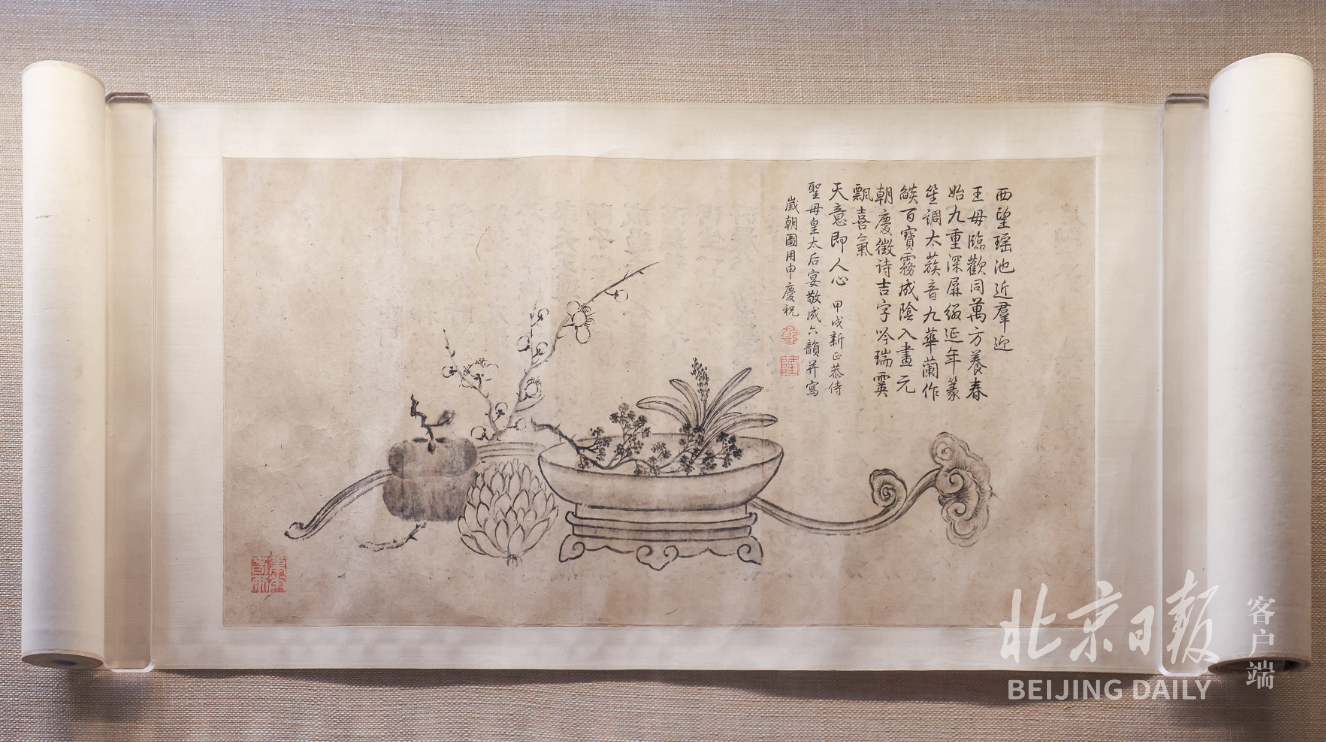 西望瑶池近羣近
王母臨歡同萬方養春
始九重深屏緩延年篆
笙調太蔟音九華蘭作
餤百寶霧成陰入畫元
朝慶徵诗吉字吟瑞霙
飄喜氣
天意即人心 甲戌新正恭侍
聖母皇太后宴敬成六韻并寫
嵗朝圖用申慶祝
北京日报
客户端
BEIJING DAILY